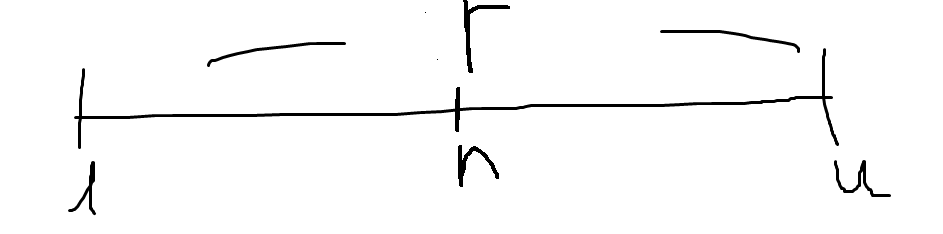 r
l n u